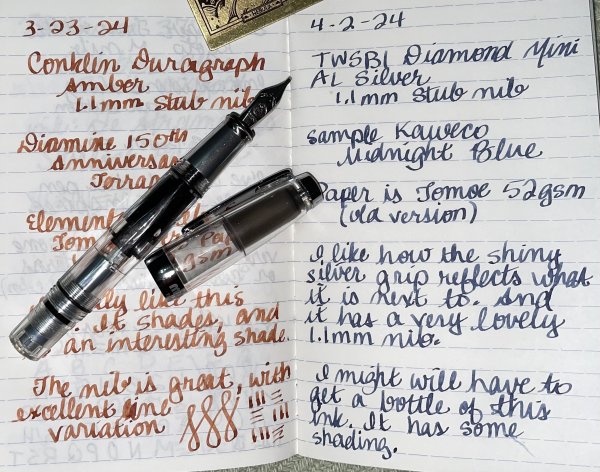 3-23-24
Conklin Duragraph
Amber
1.1mm Stub nib
Diamine 150th
Anniversar
Terra
Element
Tom
like this
It shades, and
an interesting shade.
The nib is great, with
excellent line
variation
4-2-24
TWSBI Diamond Mini
AL Silver
1.1mm Stub nib
Sample Kaweco
Midnight Blue
Paper is Tomoe 52gsm
(old version)
I like how the shiny
silver grip reflects what
it is next to. And
it has a very lovely
1.1mm nib.
I might will have to
get a bottle of this
ink. It has some
shading.